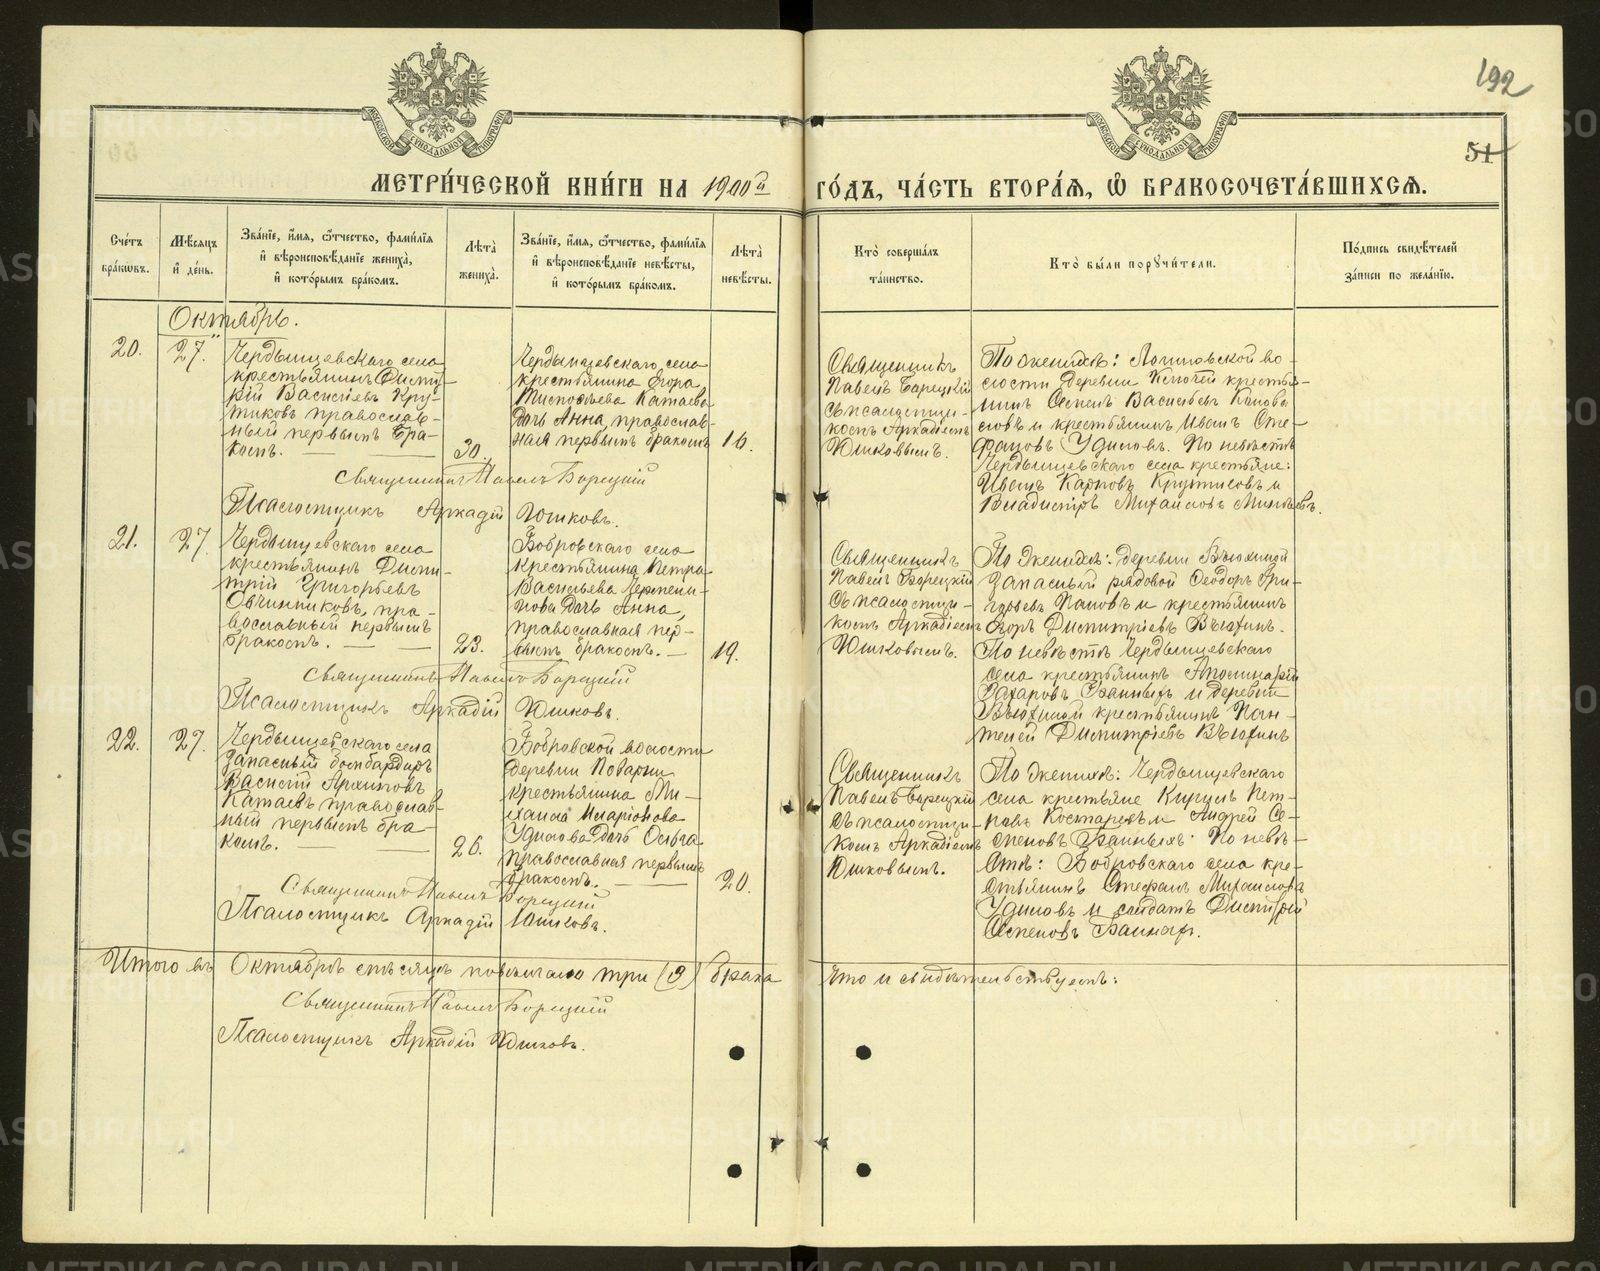 192
51
МОСКОВСКОЙ СУНОДАЛЬНОЙ ТИПОГРАФІИ
МОСКОВСКОЙ СУНОДАЛЬНОЙ ТИПОГРАФІИ
МЕТРИ́ЧЕСКОЙ КНИ́ГИ НА 1900й ГО́ДЪ, ЧА́СТЬ ВТОРА́Ѧ, Ѡ҆ БРАКОСОЧЕТА́ВШИХСѦ.
Сче́тъ
бра́кѡвъ.
Мѣ́сѧцъ
и҆ де́нь.
Зва́нїе, и҆́мѧ, ѻ҆́тчество, фами́лїѧ
и҆ вѣроисповѣ́данїе жениха̀,
и҆ кото́рымъ бра́комъ.
Лѣ́та̀
жениха̀.
Зва́нїе, и҆́мѧ, ѻ҆́тчество, фами́лїѧ
и҆ вѣроисповѣ́данїе невѣ́сты,
и҆ кото́рымъ бра́комъ.
Лѣ́та̀
невѣ́сты.
Кто̀ соверша́лъ
та́инство.
Кто̀ бы́ли порꙋчи́тели.
По́дпись свидѣ́телей
за́писи по жела́нїю.
Октябрь.
20.
27.
Чердынцевскаго села
крестьянинъ Дими-
трій Васильевъ Кру-
тиковъ православ-
ный первымъ бра-
комъ.
30.
Чердынцевскаго села
крестьянина Егора
Катаева
дочь Анна, православ-
ная первымъ бракомъ
16.
Священникъ
Павелъ Борецкій
съ псаломщи-
комъ Аркадіемъ
Юшковымъ.
По женихѣ: Логиновской во-
лости деревни крестья-
нинъ Васильевъ
и крестьянинъ Иванъ Сте-
фановъ Удиловъ. По невѣстѣ
Чердынцевскаго села крестьяне:
Иванъ Карповъ и
Владиміръ Михайловъ
Священникъ Павелъ Борецкій
Псаломщикъ Аркадій Юшковъ.
21.
27.
Чердынцевскаго села
крестьянинъ Дими-
трій Григорьевъ
Овчинниковъ, пра-
вославный первымъ
бракомъ.
23.
Бобровскаго села
крестьянина Петра
Васильева
дочь Анна,
православная пер-
вымъ бракомъ.
19.
Священникъ
Павелъ Борецкій
съ псаломщи-
комъ Аркадіемъ
Юшковымъ.
По женихѣ: деревни Вьюхиной
запасный рядовой Ѳеодоръ Гри-
горьевъ Пановъ и крестьянинъ
Егоръ Димитріевъ Вьюхинъ.
По невѣстѣ Чердынцевскаго
села крестьянинъ Аполинарій
Захаровъ Банныхъ и деревни
Вьюхиной крестьянинъ Пан-
телей Димитріевъ Вьюхинъ
Священникъ Павелъ Борецкій
Псаломщикъ Аркадій Юшковъ.
22.
27.
Чердынцевскаго села
запасный бомбардиръ
Василій Архиповъ
Катаевъ православ-
ный первымъ бра-
комъ.
26.
Бобровской волости
деревни Поварни
крестьянина Ми-
хаила Иларіонова
Удилова дочь Ольга
православная первымъ
бракомъ.
20.
Священникъ
Павелъ Борецкій
съ псаломщи-
комъ Аркадіемъ
Юшковымъ.
По женихѣ: Чердынцевскаго
села крестьяне Кириллъ Пет-
ровъ Костаревъ и Андрей Се-
меновъ Банныхъ. По невѣ-
стѣ: Бобровскаго села кре-
стьянинъ Стефанъ Михайловъ
Удиловъ и солдатъ Димитрій
Священникъ Павелъ Борецкій
Псаломщикъ Аркадій Юшковъ.
Итого въ Октябрѣ мѣсяцѣ повѣнчано три (3) брака что и свидѣтельствуемъ:
Священникъ Павелъ Борецкій
Псаломщикъ Аркадій Юшковъ.
METRIKI.GASO-URAL.RU